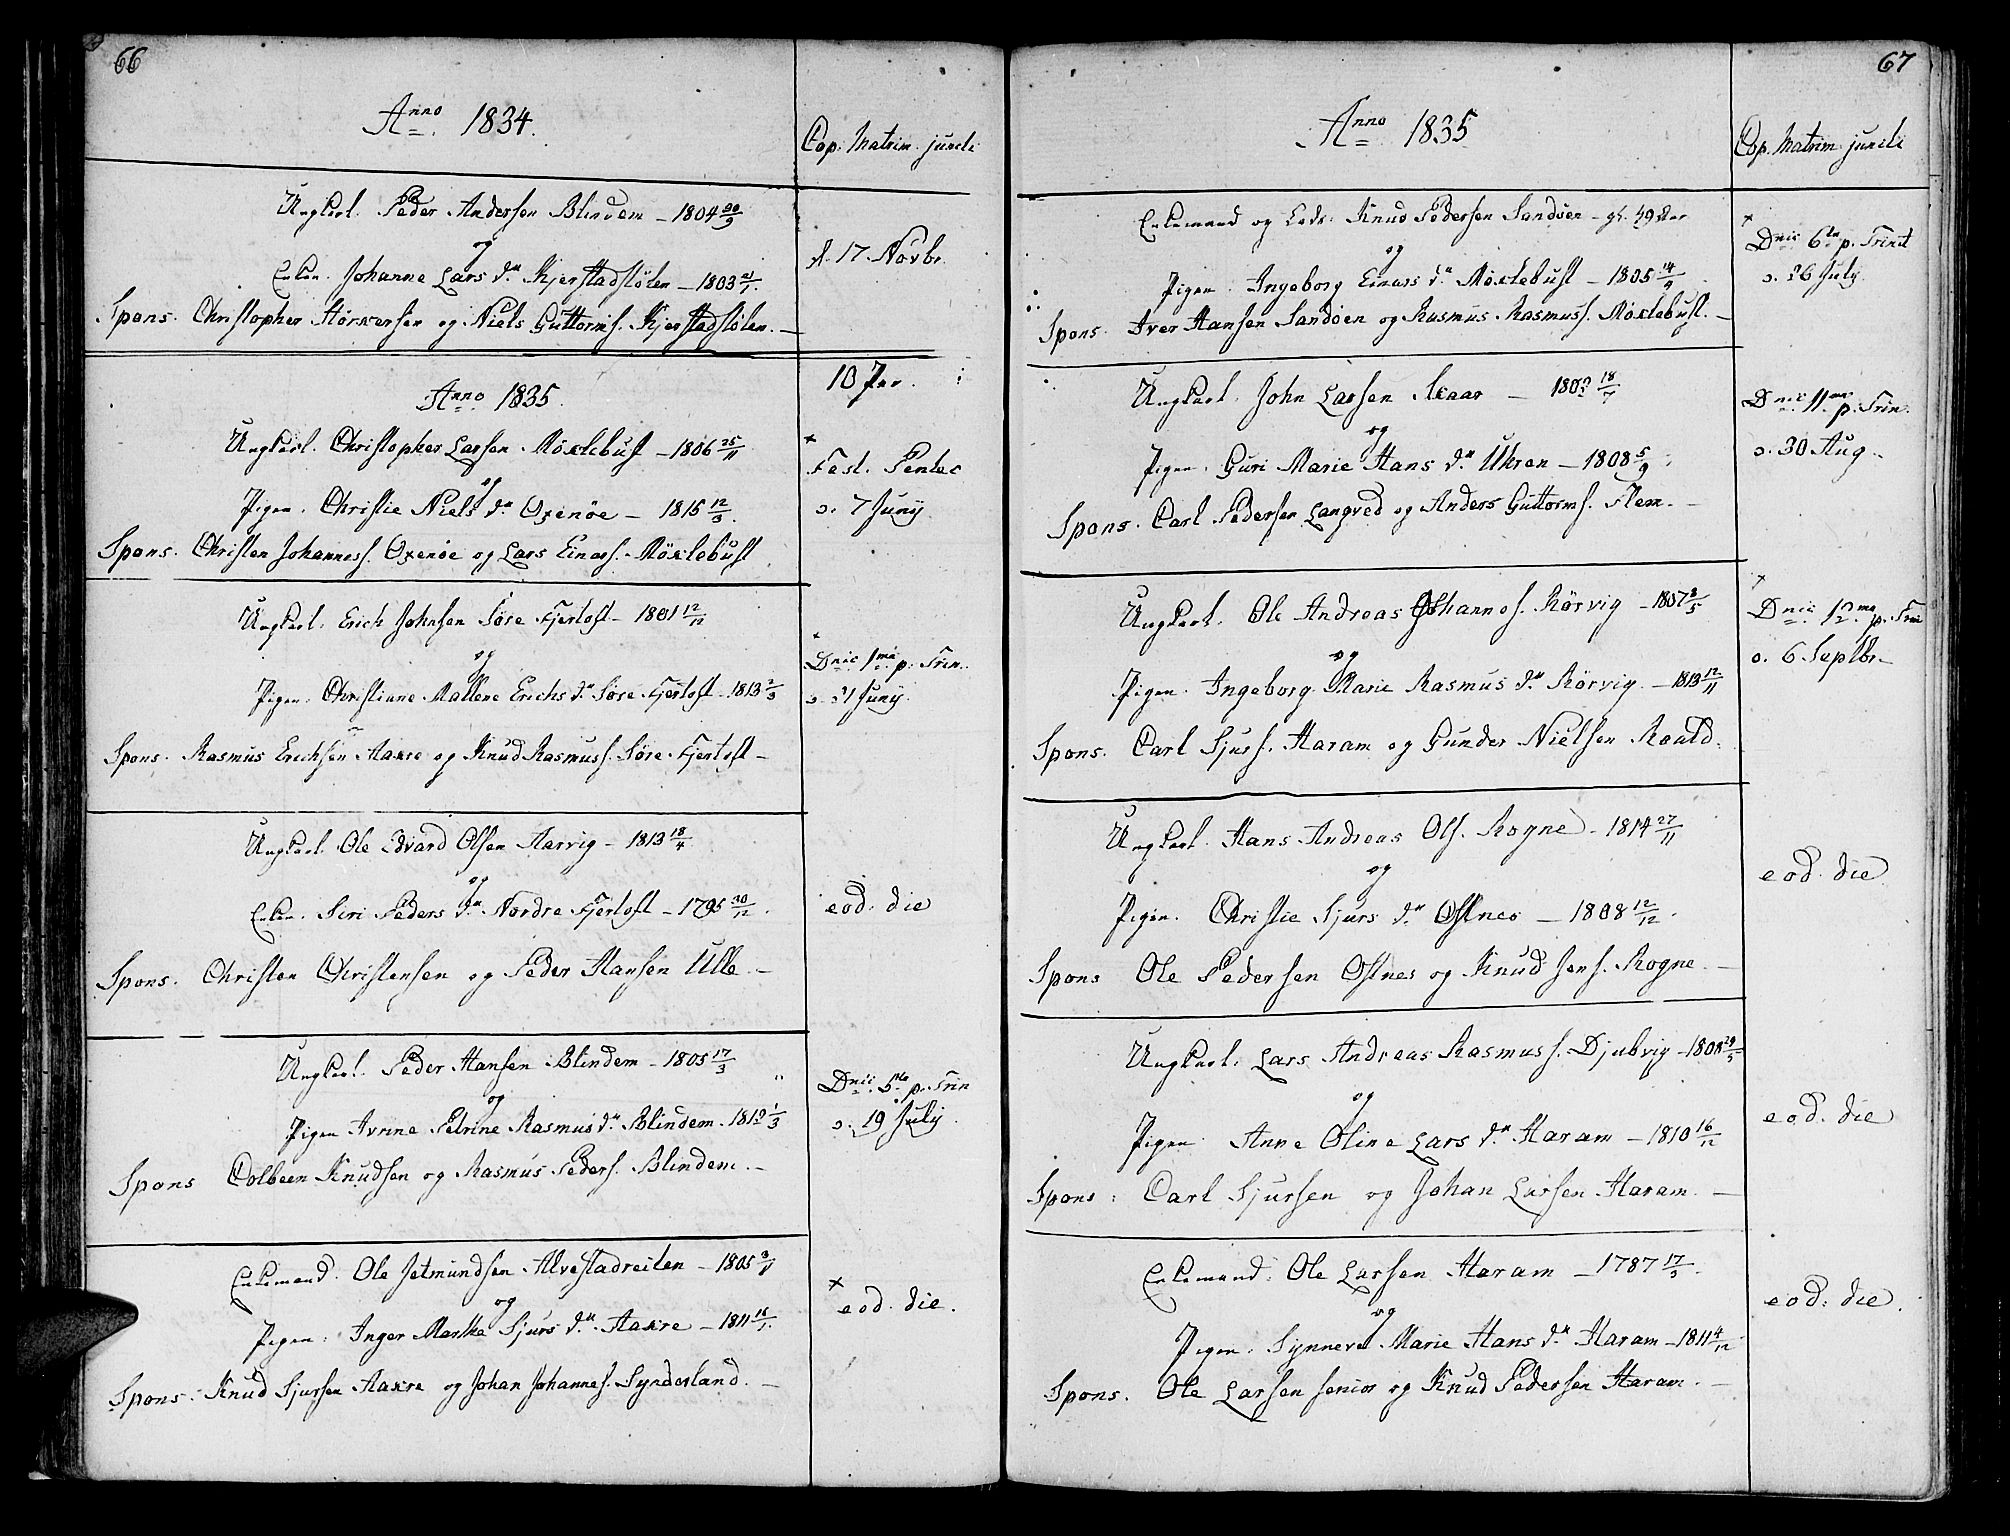 66
Anno 1834.
Cop. Matrim. juncti
Ungkarl. Peder Andersen Blindem - 1804 20/9
og
Enken. Johanne Lars d.r Kjerstadslølen - 1803 21/1.
d. 17 Novbr.
Spons. Christopher Størkersen og Niels Guttorms. Kjerstadslølen. -
10 Par.
Anno 1835.
Ungkarl. Christopher Larsen Moxlebust - 1806 25/11
og
Pigen. Christie Niels d.r Oxenöe - 1815 12/3.
Fest. Pentec
d. 7 Junij
Spons. Christen Johanness. Oxenöe og Lars Einars. Moxlebust
Ungkarl. Erich Johnsen Søre Fjertoft - 1801 12/12
og
Pigen. Christiane Mallene Erichs d.r Søre Fjertoft - 1813 2/3
Dnic 1ma p. Trin.
d. 21 Junij.
Spons. Rasmus Erichsen Aakre og Knud Rasmuss. Søre Fjertoft -
Ungkarl. Ole Edvard Olsen Aarvig - 1813 18/4
og
Enken. Siri Peders d.r Nordre Fjertoft - 1795 20/12.
eod. die
Spons. Christen Christensen og Peder Hansen Ulle. -
Ungkarl. Peder Hansen Blindem - 1805 17/3
og
Pigen Ivrine Petrine Rasmus d.r Blindem. 1812 1/3
Dnic. 5ta p. Trin
d. 19 July.
Spons Colbeen Knudsen og Rasmus Peders. Blindem. -
Enkemand. Ole Jetmundsen Alvestadreiten - 1805 3/11
og
Pigen. Inger Marthe Sjurs d.r Aakre - 1811 18/1.
eod. die.
Spons. Knud Sjursen Aakre og Johan Johannes. Synderland. -
67
Anno 1835
Cop. Matrim. juncti
Enkemand og Leds. Knud Pedersen Sandöen - gl. 49 Aar
og
Pigen. Ingeborg Einars d.r Moxlebust - 1805 14/9
Dnic 6ta p. Trinit
d. 26 July.
Spons. Iver Hansen Sandöen og Rasmus Rasmuss. Moxlebust. -
Ungkarl. John Larsen Skaar - 1802 18/7
og
Pigen. Guri Marie Hans d.r Ukren - 1808 5/9
Dnic. 11ma p. Trin.
d. 30 Aug.
Spons. Carl Pedersen Langved og Anders Guttorms. Flem. -
Ungkarl. Ole Andreas Johannes. Rörvig - 1807 8/5
og
Pigen. Ingeborg Marie Rasmus d.r Rörvig. - 1813 12/11
Dnic 12ma p. Trin
d. 6 Septbr.
Spons. Carl Sjurs. Haram og Gunder Nielsen Roald.
Ungkarl. Hans Andreas Ols. Rogne - 1814 27/11
og
Pigen. Christie Sjurs d.r Ostnes - 1808 12/12.
eod. die
Spons Ole Pedersen Ostnes og Knud Jens. Rogne. -
Ungkarl. Lars Andreas Rasmuss. Djubvig - 1808 29/5
og
Pigen Anne Oline Lars d.r Haram - 1810 16/12
eod. die
Spons: Carl Sjursen og Johan Larsen Haram. -
Enkemand. Ole Larsen Haram - 1787 17/3.
og
Pigen. Synneve Marie Hans d.r Haram - 1811 4/12
eod: die.
Spons. Ole Larsen senior og Knud Pedersen Haram. -